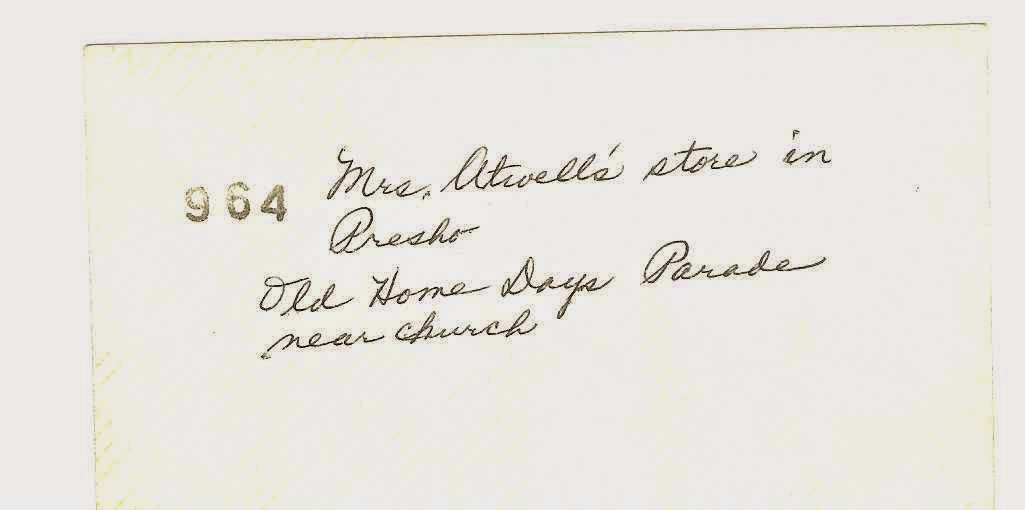 964 Mrs. Atwell's store in
Presho
Old Home Days Parade
near church